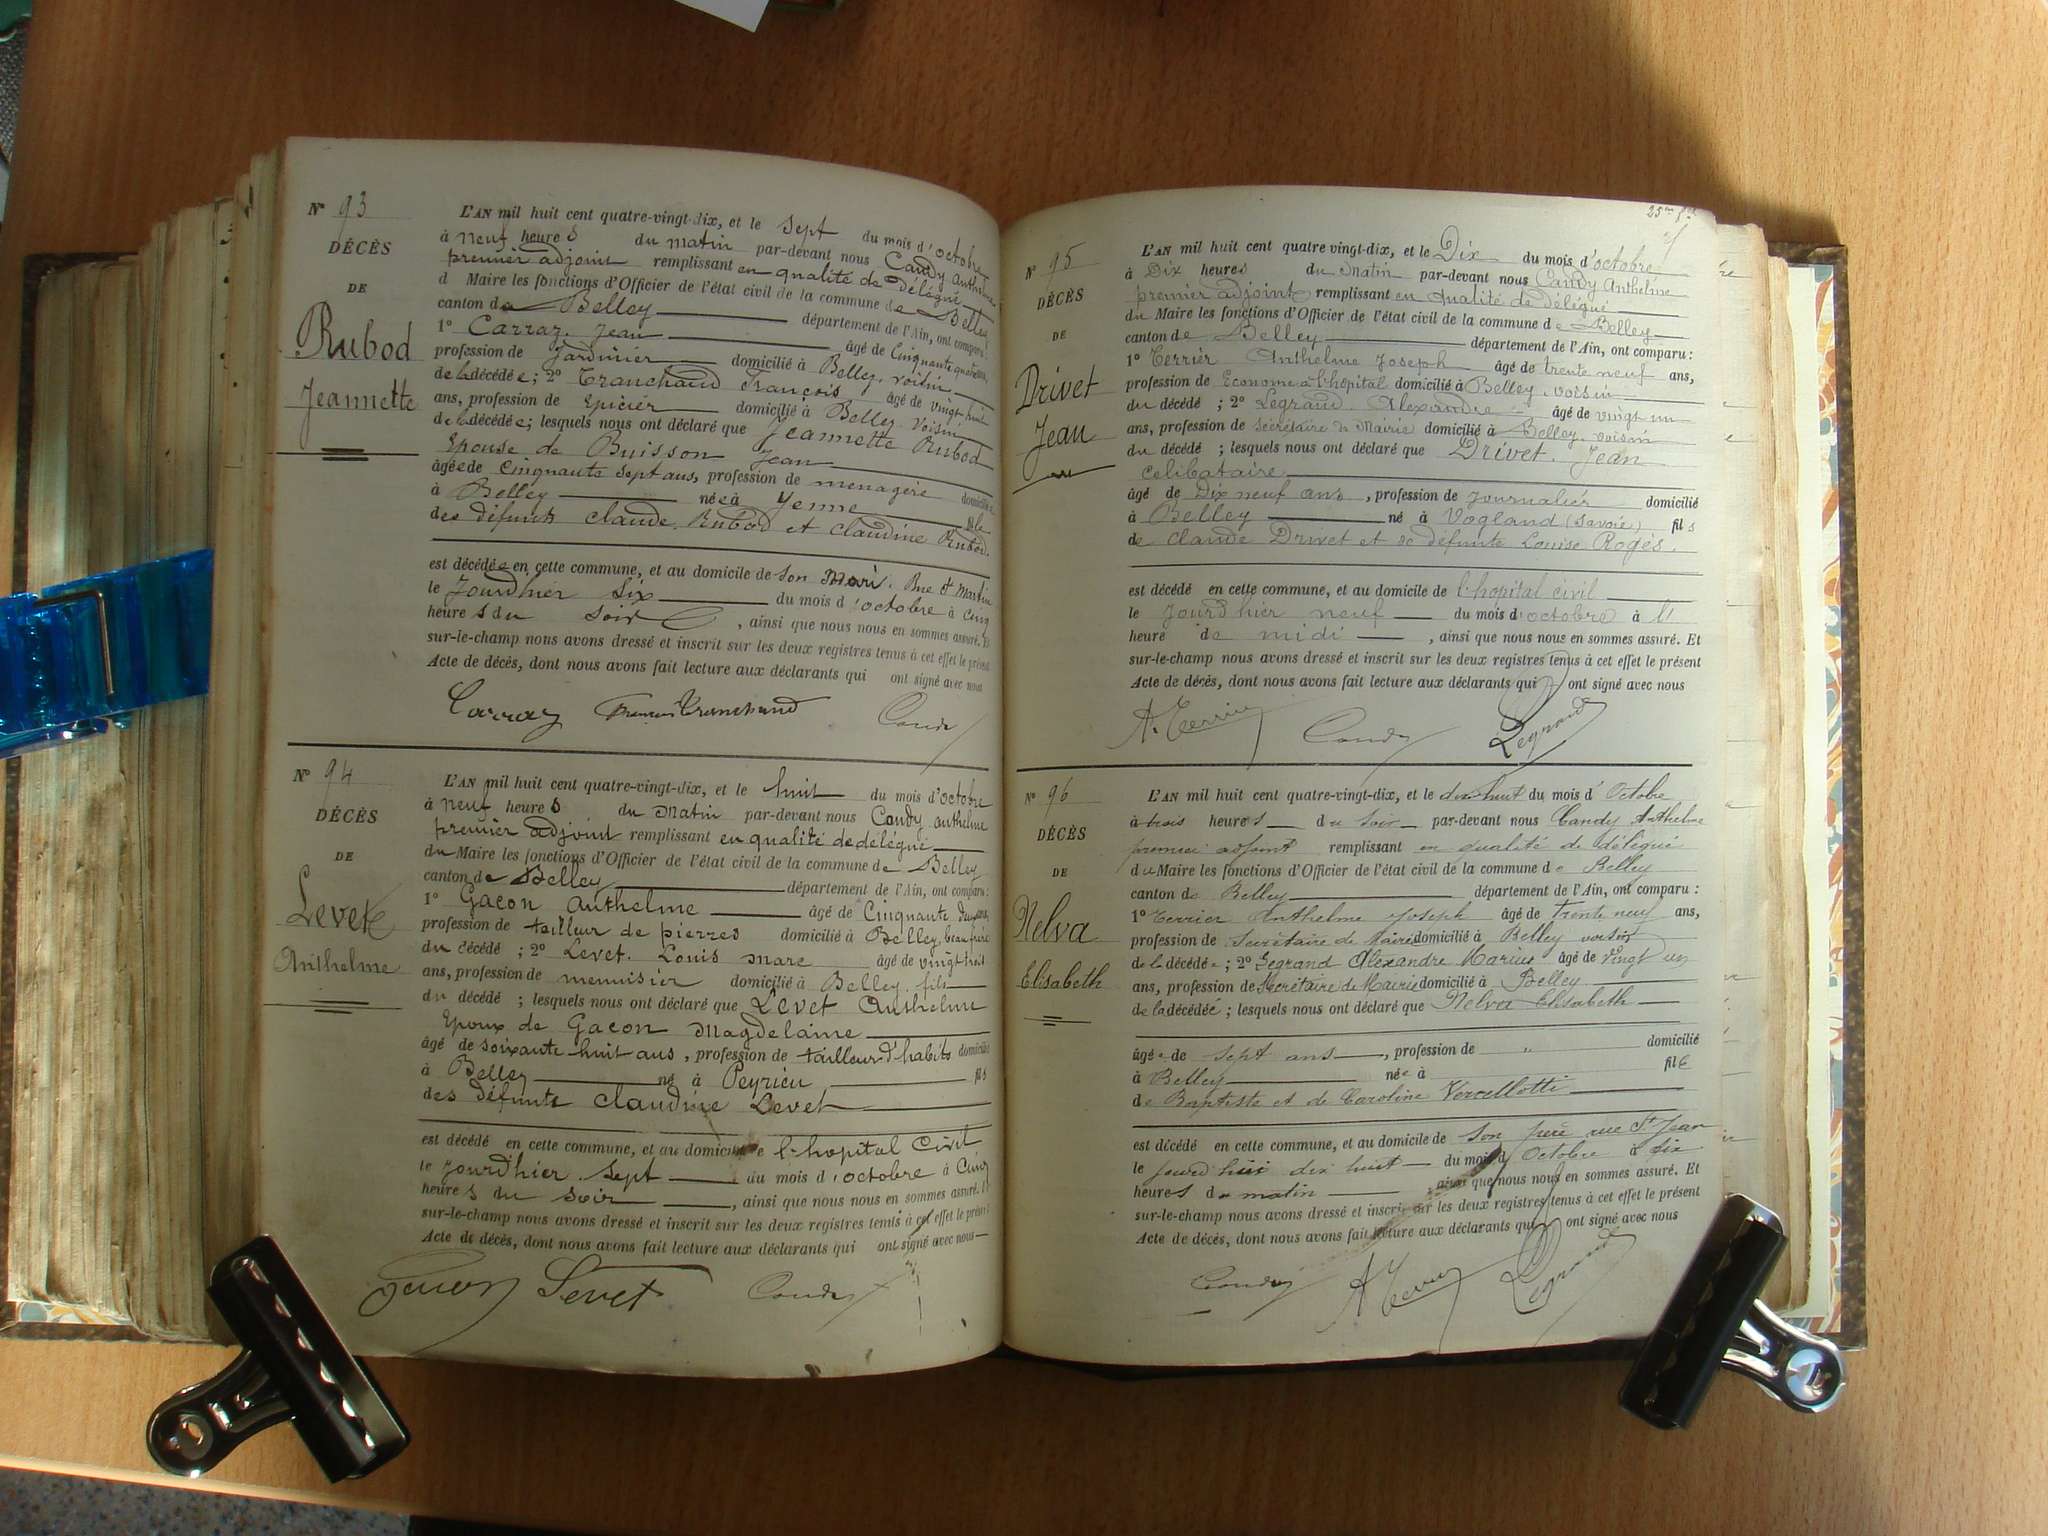 N° 93
DÉCÈS
DE
Rubod
Jeannette
L'AN mil huit cent quatre-vingt-dix, et le sept du mois d'octobre
à neuf heures du matin par-devant nous Candy Anthelme
premier adjoint remplissant en qualité de Délégué
d Maire les fonctions d'Officier de l'état civil de la commune de Belley
canton de Belley département de l'Ain, ont comparu :
1° Carraz Jean âgé de Cinquante quatre ans,
profession de Jardinier domicilié à Belley, voisin
de la décédée; 2° Tranchand François âgé de vingt huit
ans, profession de Epicier domicilié à Belley voisin
de la décédée; lesquels nous ont déclaré que Jeannette Rubod
Epouse de Buisson Jean
âgée de Cinquante sept ans, profession de menagère domiciliée
à Belley née à Yenne fille
des défunts Claude Rubod et Claudine Rubod.
est décédée en cette commune, et au domicile de son Mari. Rue St Martin
le Jourdhier six du mois d'octobre à cinq
heures du soir, ainsi que nous nous en sommes assuré. Et
sur-le-champ nous avons dressé et inscrit sur les deux registres tenus à cet effet le présent
Acte de décès, dont nous avons fait lecture aux déclarants qui ont signé avec nous
Carraz François Tranchand Candy
N° 94
DÉCÈS
DE
Levet
Anthelme
L'AN mil huit cent quatre-vingt-dix, et le huit du mois d'octobre
à neuf heures du Matin par-devant nous Candy anthelme
premier adjoint remplissant en qualité de délégué
du Maire les fonctions d'Officier de l'état civil de la commune de Belley
canton de Belley département de l'Ain, ont comparu :
1° Gacon Anthelme âgé de Cinquante deux ans,
profession de tailleur de pierres domicilié à Belley, beau frère
du décédé ; 2° Levet Louis Marc âgé de vingt trois
ans, profession de menuisier domicilié à Belley, fils
du décédé ; lesquels nous ont déclaré que Levet Anthelme
Epoux de Gacon Magdelaine
âgé de soixante huit ans, profession de tailleur d'habits domicilié
à Belley né à Peyrieu fils
des défunts Claudine Levet
est décédé en cette commune, et au domicile de l'hopital Civil
le jourdhier sept du mois d'octobre à Cinq
heures du soir, ainsi que nous nous en sommes assuré. Et
sur-le-champ nous avons dressé et inscrit sur les deux registres tenus à cet effet le présent
Acte de décès, dont nous avons fait lecture aux déclarants qui ont signé avec nous
Gacon Levet Candy
N° 95
DÉCÈS
DE
Drivet
Jean
L'AN mil huit cent quatre-vingt-dix, et le Dix du mois d'octobre
à Dix heures du Matin par-devant nous Candy Anthelme
premier adjoint remplissant en qualité de délégué
du Maire les fonctions d'Officier de l'état civil de la commune de Belley
canton de Belley département de l'Ain, ont comparu :
1° Terrier Anthelme Joseph âgé de trente neuf ans,
profession de Econome à l'hopital domicilié à Belley, voisin
du décédé ; 2° Legrand Alexandre âgé de vingt un
ans, profession de Secrétaire de Mairie domicilié à Belley, voisin
du décédé ; lesquels nous ont déclaré que Drivet Jean
celibataire
âgé de Dix neuf ans, profession de journalier domicilié
à Belley né à Vogland (Savoie) fils
de Claude Drivet et de défunte Louise Rogès.
est décédé en cette commune, et au domicile de l'hopital civil
le jourdhier neuf du mois d'octobre à l'1
heure de midi, ainsi que nous nous en sommes assuré. Et
sur-le-champ nous avons dressé et inscrit sur les deux registres tenus à cet effet le présent
Acte de décès, dont nous avons fait lecture aux déclarants qui ont signé avec nous
A. Terrier Candy Legrand
N° 96
DÉCÈS
DE
Nelva
Elisabeth
L'AN mil huit cent quatre-vingt-dix, et le dix huit du mois d'Octobre
à trois heures du soir par-devant nous Candy Anthelme
premier adjoint remplissant en qualité de délégué
du Maire les fonctions d'Officier de l'état civil de la commune de Belley
canton de Belley département de l'Ain, ont comparu :
1° Terrier Anthelme Joseph âgé de Trente neuf ans,
profession de Secrétaire de Mairie domicilié à Belley voisin
de la décédée ; 2° Legrand Alexandre Marius âgé de vingt un
ans, profession de Secrétaire de Mairie domicilié à Belley
de la décédée ; lesquels nous ont déclaré que Nelva Elisabeth
âgée de sept ans, profession de " domicilié
à Belley née à fille
de Baptiste et de Caroline Vercellotti
est décédé en cette commune, et au domicile de son père rue St Jean
le jourd'hui dix huit du mois d'Octobre à six
heures du matin, ainsi que nous nous en sommes assuré. Et
sur-le-champ nous avons dressé et inscrit sur les deux registres tenus à cet effet le présent
Acte de décès, dont nous avons fait lecture aux déclarants qui ont signé avec nous
Candy A Terrier Legrand